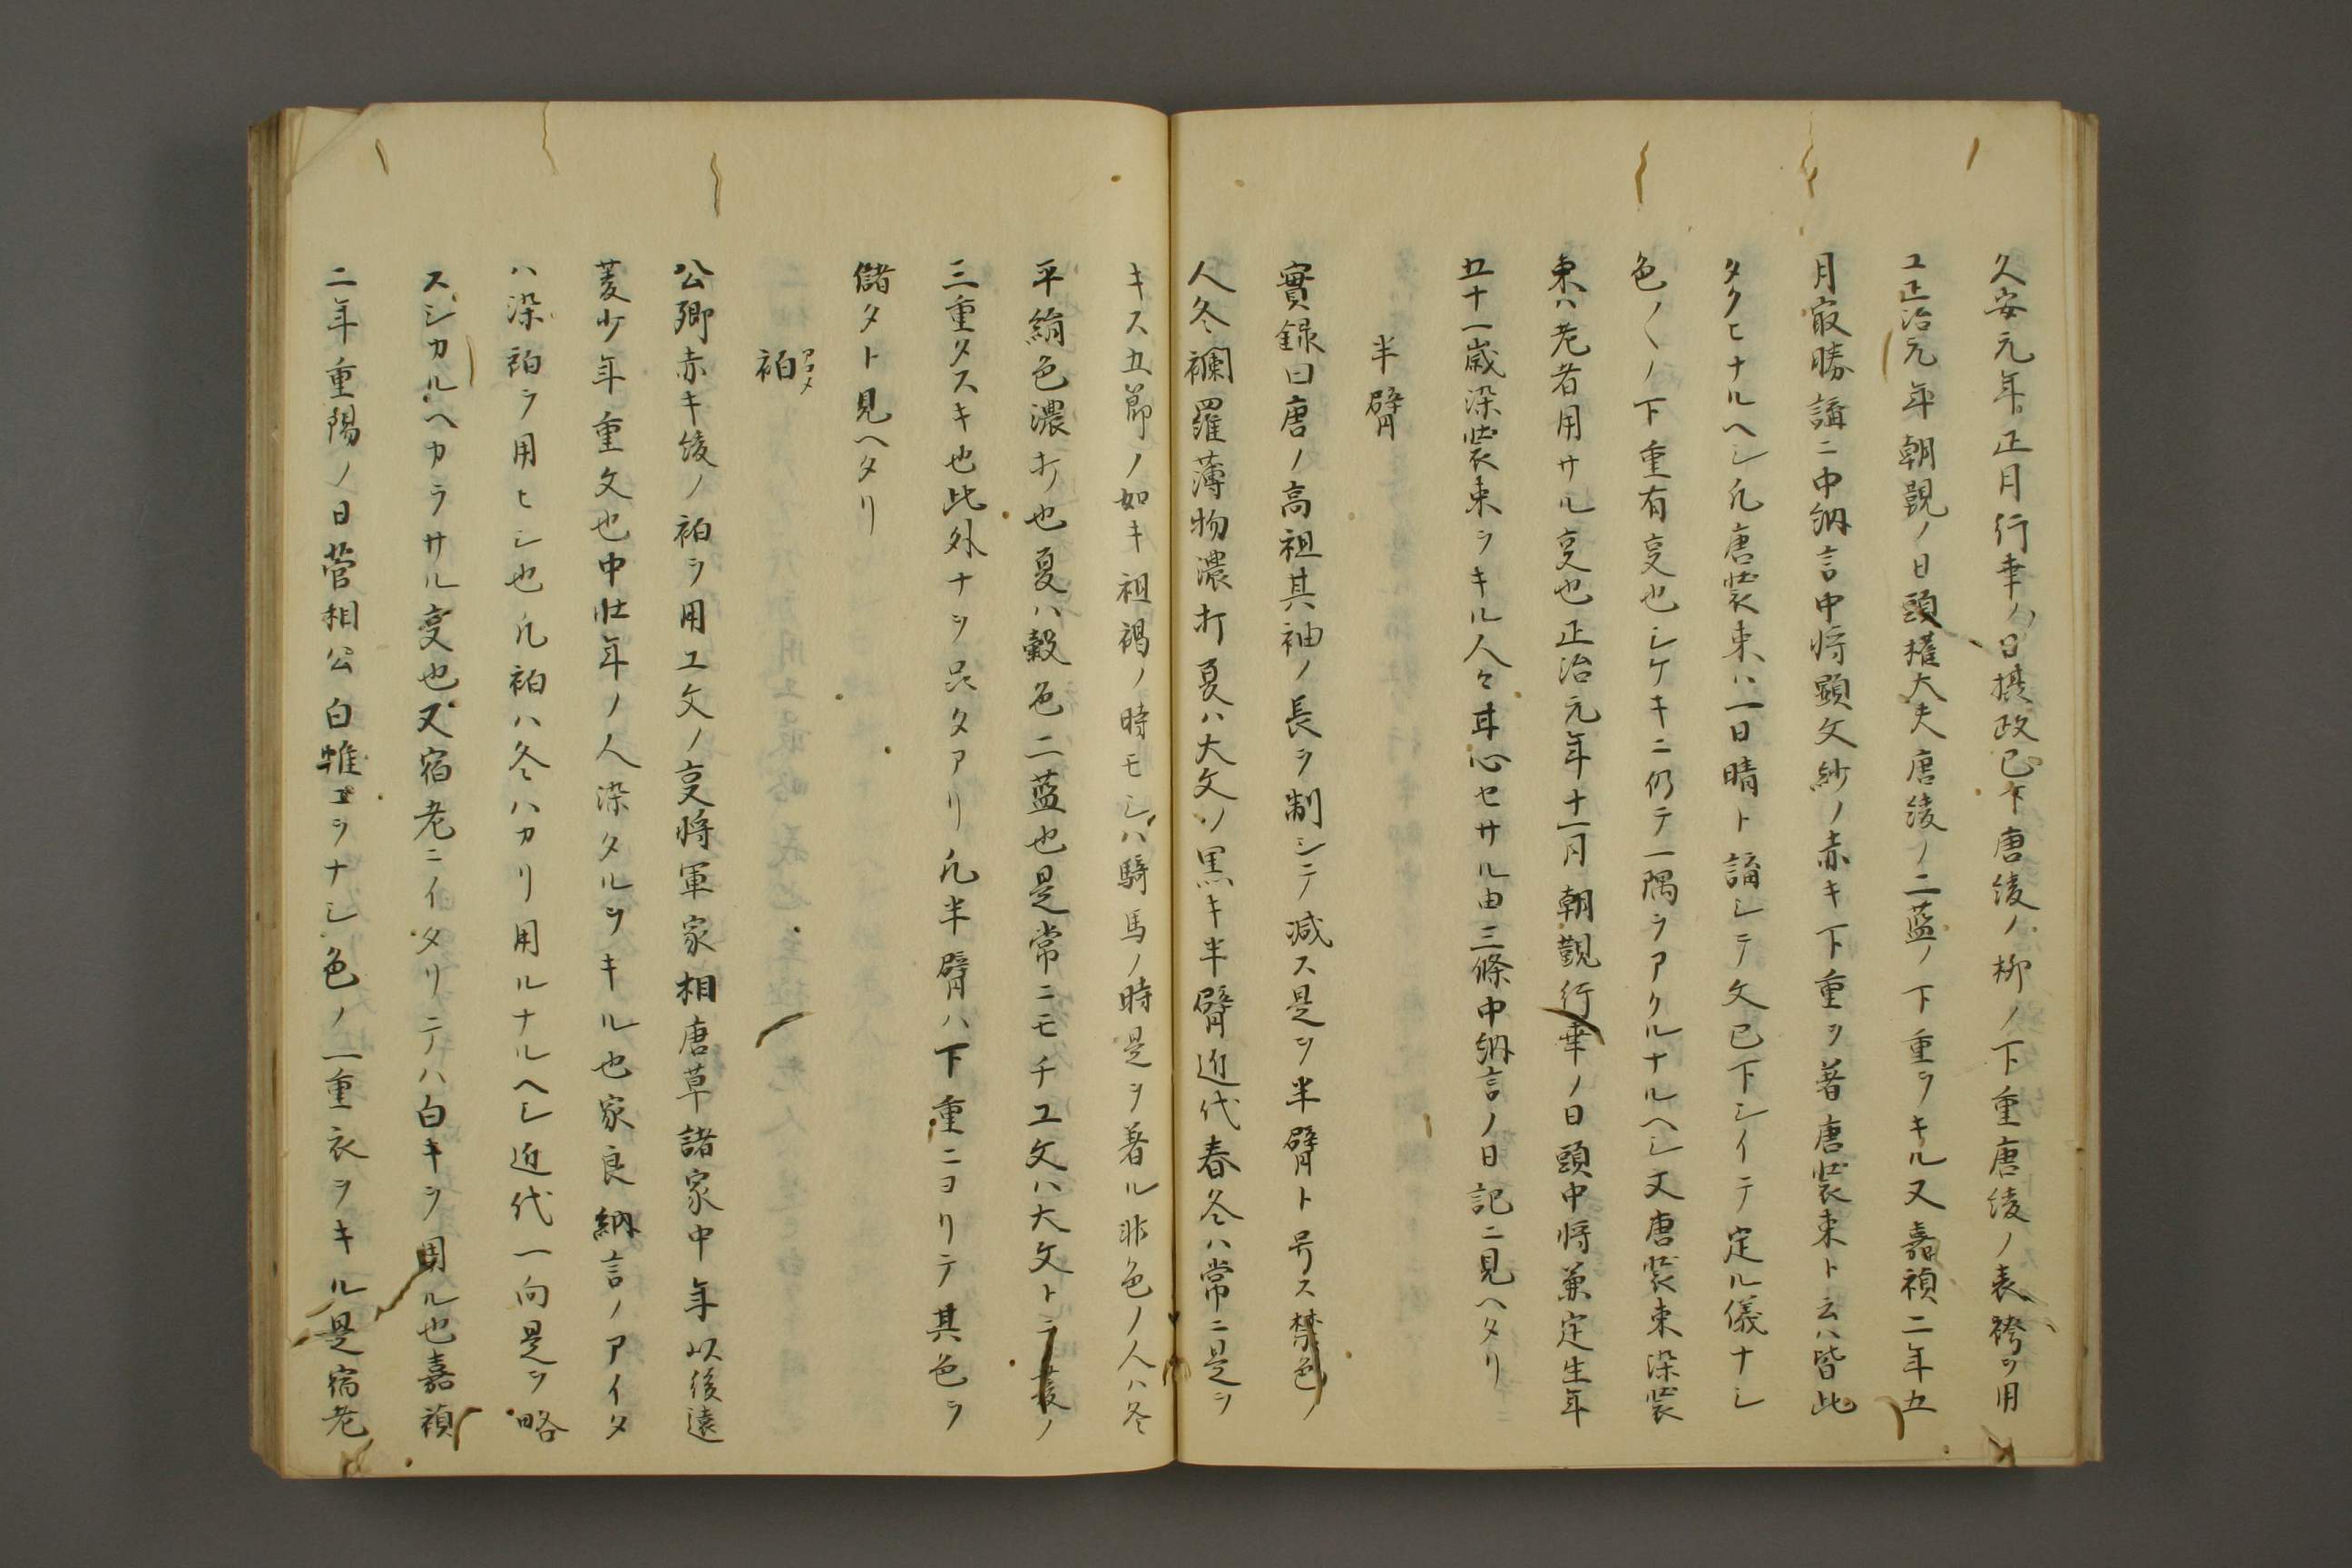 久安元年正月行幸ノ日摂政已下唐綾ノ柳ノ下重唐綾ノ表袴ヲ用
ユ正治元年朝覲ノ日頭権大夫唐綾ノ二藍ノ下重ヲキル又嘉禎二年五
月㝡勝講ニ中納言中将顕文紗ノ赤キ下重ヲ著唐装束ト云ハ皆此
タクヒナルヘシ凡唐装束ハ一日晴ト論シテ文已下シイテ定ル儀ナシ
色〳〵ノ下重有㕝也シケキニ仍テ一隅ヲアクルナルヘシ又唐装束染装
束ハ老者用サル㕝也正治元年十一月朝覲行幸ノ日頭中将兼定生年
五十一歳染装束ヲキル人々甘心セサル由三條中納言ノ日記ニ見ヘタリ
半臂
實録曰唐ノ高祖其袖ノ長ヲ制シテ減ス是ヲ半臂ト号ス禁色ノ
人冬襴羅薄物濃打夏ハ大文ノ黒キ半臂近代春冬ハ常ニ是ヲ
キス五節ノ如キ袒裼ノ時モシハ騎馬ノ時是ヲ著ル非色ノ人ハ冬
平絹色濃打也夏ハ縠色二藍也是常ニモチユ文ハ大文トニ襲ノ
三重タスキ也此外ナヲ品タアリ凡半臂ハ下重ニヨリテ其色ヲ
儲タト見ヘタリ
袙アコメ
公卿赤キ綾ノ袙ヲ用ユ文ノ㕝将軍家相唐草諸家中年以後遠
菱少年重文也中壮年ノ人染タルヲキル也家良納言ノアイタ
ハ染袙ヲ用ヒシ也凡袙ハ冬ハカリ用ルナルヘシ近代一向是ヲ略
スシカルヘカラサル㕝也又宿老ニイタリテハ白キヲ用ル也嘉禎
二年重陽ノ日菅相公白椎ヱヲナシ色ノ一重衣ヲキル是宿老